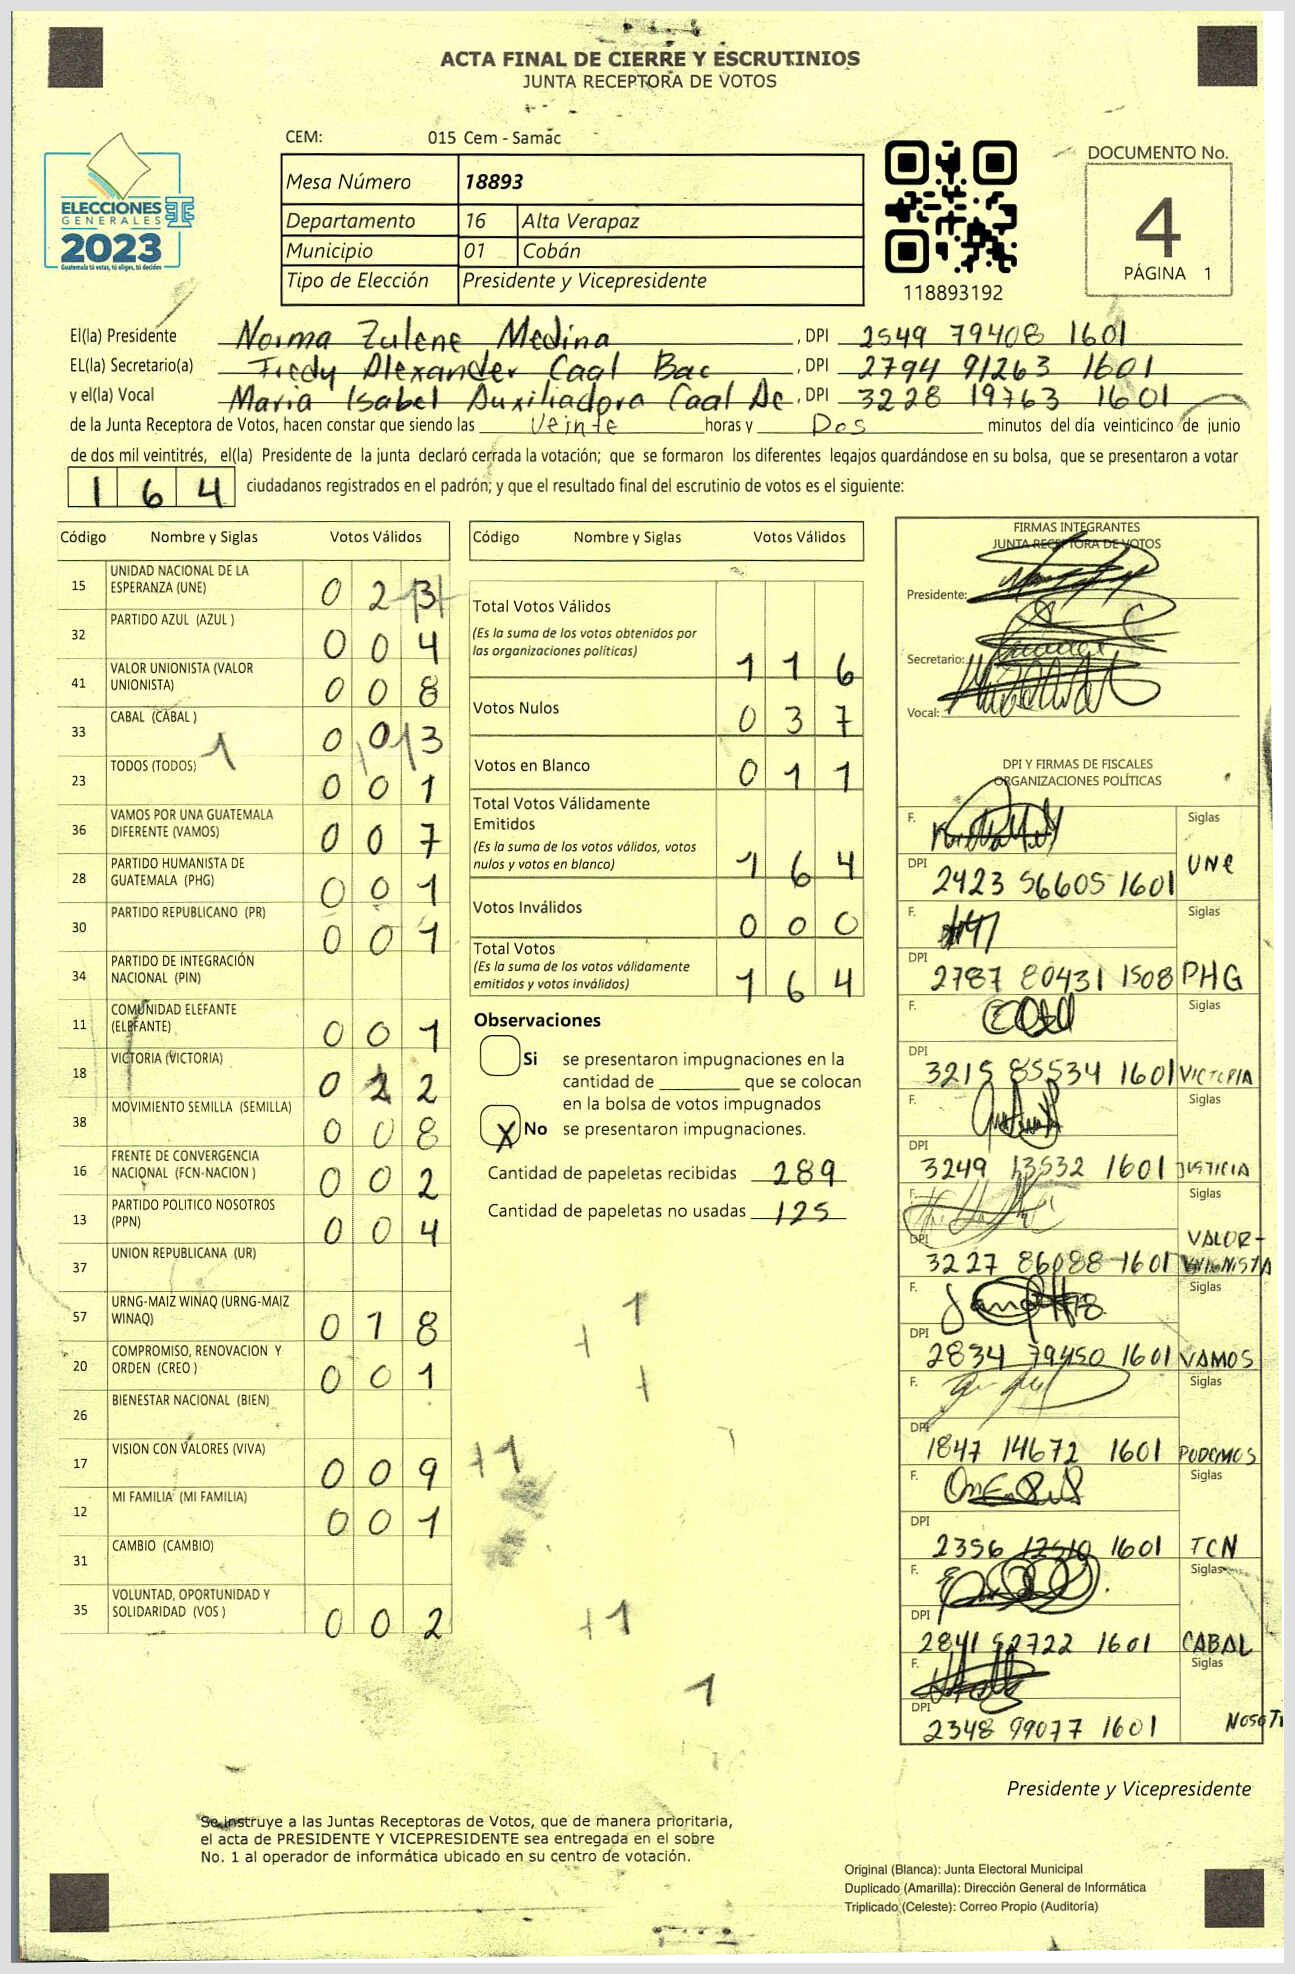 ACTA FINAL DE CIERRE Y ESCRUTINIOS
JUNTA RECEPTORA DE VOTOS
CEM: 015 Cem - Samac
Mesa Número 18893
Departamento 16 Alta Verapaz
Municipio 01 Cobán
Tipo de Elección Presidente y Vicepresidente
ELECCIONES
GENERALES
2023
Guatemala tú votas, tú eliges, tú decides
118893192
DOCUMENTO No.
4
PÁGINA 1
El(la) Presidente Norma Zulene Medina , DPI 2549 79408 1601
EL(la) Secretario(a) Fredy Alexander Caal Bac , DPI 2794 91263 1601
y el(la) Vocal Maria Isabel Auxiliadora Caal Ac , DPI 3228 19763 1601
de la Junta Receptora de Votos, hacen constar que siendo las Veinte horas y Dos minutos del día veinticinco de junio
de dos mil veintitrés, el(la) Presidente de la junta declaró cerrada la votación; que se formaron los diferentes legajos quardándose en su bolsa, que se presentaron a votar
164 ciudadanos registrados en el padrón; y que el resultado final del escrutinio de votos es el siguiente:
Código Nombre y Siglas Votos Válidos
15 UNIDAD NACIONAL DE LA ESPERANZA (UNE) 0 2 3
32 PARTIDO AZUL (AZUL ) 0 0 4
41 VALOR UNIONISTA (VALOR UNIONISTA) 0 0 8
33 CABAL (CABAL ) 0 0 13
23 TODOS (TODOS) 0 0 1
36 VAMOS POR UNA GUATEMALA DIFERENTE (VAMOS) 0 0 7
28 PARTIDO HUMANISTA DE GUATEMALA (PHG) 0 0 1
30 PARTIDO REPUBLICANO (PR) 0 0 1
34 PARTIDO DE INTEGRACIÓN NACIONAL (PIN)
11 COMUNIDAD ELEFANTE (ELEFANTE) 0 0 1
18 VICTORIA (VICTORIA) 0 2 2
38 MOVIMIENTO SEMILLA (SEMILLA) 0 0 8
16 FRENTE DE CONVERGENCIA NACIONAL (FCN-NACION ) 0 0 2
13 PARTIDO POLITICO NOSOTROS (PPN) 0 0 4
37 UNION REPUBLICANA (UR)
57 URNG-MAIZ WINAQ (URNG-MAIZ WINAQ) 0 1 8
20 COMPROMISO, RENOVACION Y ORDEN (CREO ) 0 0 1
26 BIENESTAR NACIONAL (BIEN)
17 VISION CON VALORES (VIVA) 0 0 9
12 MI FAMILIA (MI FAMILIA) 0 0 1
31 CAMBIO (CAMBIO)
35 VOLUNTAD, OPORTUNIDAD Y SOLIDARIDAD (VOS ) 0 0 2
Código Nombre y Siglas Votos Válidos
Total Votos Válidos
(Es la suma de los votos obtenidos por
las organizaciones políticas) 1 1 6
Votos Nulos 0 3 7
Votos en Blanco 0 1 1
Total Votos Válidamente
Emitidos
(Es la suma de los votos válidos, votos
nulos y votos en blanco) 1 6 4
Votos Inválidos 0 0 0
Total Votos
(Es la suma de los votos válidamente
emitidos y votos inválidos) 1 6 4
Observaciones
Si se presentaron impugnaciones en la
cantidad de ________ que se colocan
en la bolsa de votos impugnados
X No se presentaron impugnaciones.
Cantidad de papeletas recibidas 289
Cantidad de papeletas no usadas 125
+1
+1
FIRMAS INTEGRANTES
JUNTA RECEPTORA DE VOTOS
Presidente:
Secretario:
Vocal:
DPI Y FIRMAS DE FISCALES
ORGANIZACIONES POLÍTICAS
F. Siglas
DPI 2423 56605 1601 UNE
F. Siglas
DPI 2787 80431 1508 PHG
F. Siglas
DPI 3215 85534 1601 VICTORIA
F. Siglas
DPI 3249 13532 1601 JUSTICIA
F. Siglas
DPI 3227 86088 1601 VALOR-UNIONISTA
F. Siglas
DPI 2834 79450 1601 VAMOS
F. Siglas
DPI 1847 14672 1601 PODEMOS
F. Siglas
DPI 2356 12510 1601 TCN
F. Siglas
DPI 2841 52722 1601 CABAL
F. Siglas
DPI 2348 99077 1601 NOSOT
Presidente y Vicepresidente
Se instruye a las Juntas Receptoras de Votos, que de manera prioritaria,
el acta de PRESIDENTE Y VICEPRESIDENTE sea entregada en el sobre
No. 1 al operador de informática ubicado en su centro de votación.
Original (Blanca): Junta Electoral Municipal
Duplicado (Amarilla): Dirección General de Informática
Triplicado (Celeste): Correo Propio (Auditoría)